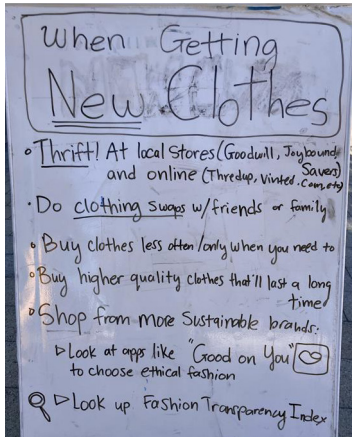 When Getting
New Clothes
• Thrift! At local stores (Goodwill, Joybound,
Savers)
and online (Thredup, Vinted.com, etc)
• Do clothing swaps w/friends or family
• Buy clothes less often/only when you need to
• Buy higher quality clothes that'll last a long
time
• Shop from more sustainable brands:
▷ Look at apps like "Good on You"
to choose ethical fashion
▷ Look up Fashion Transparency Index